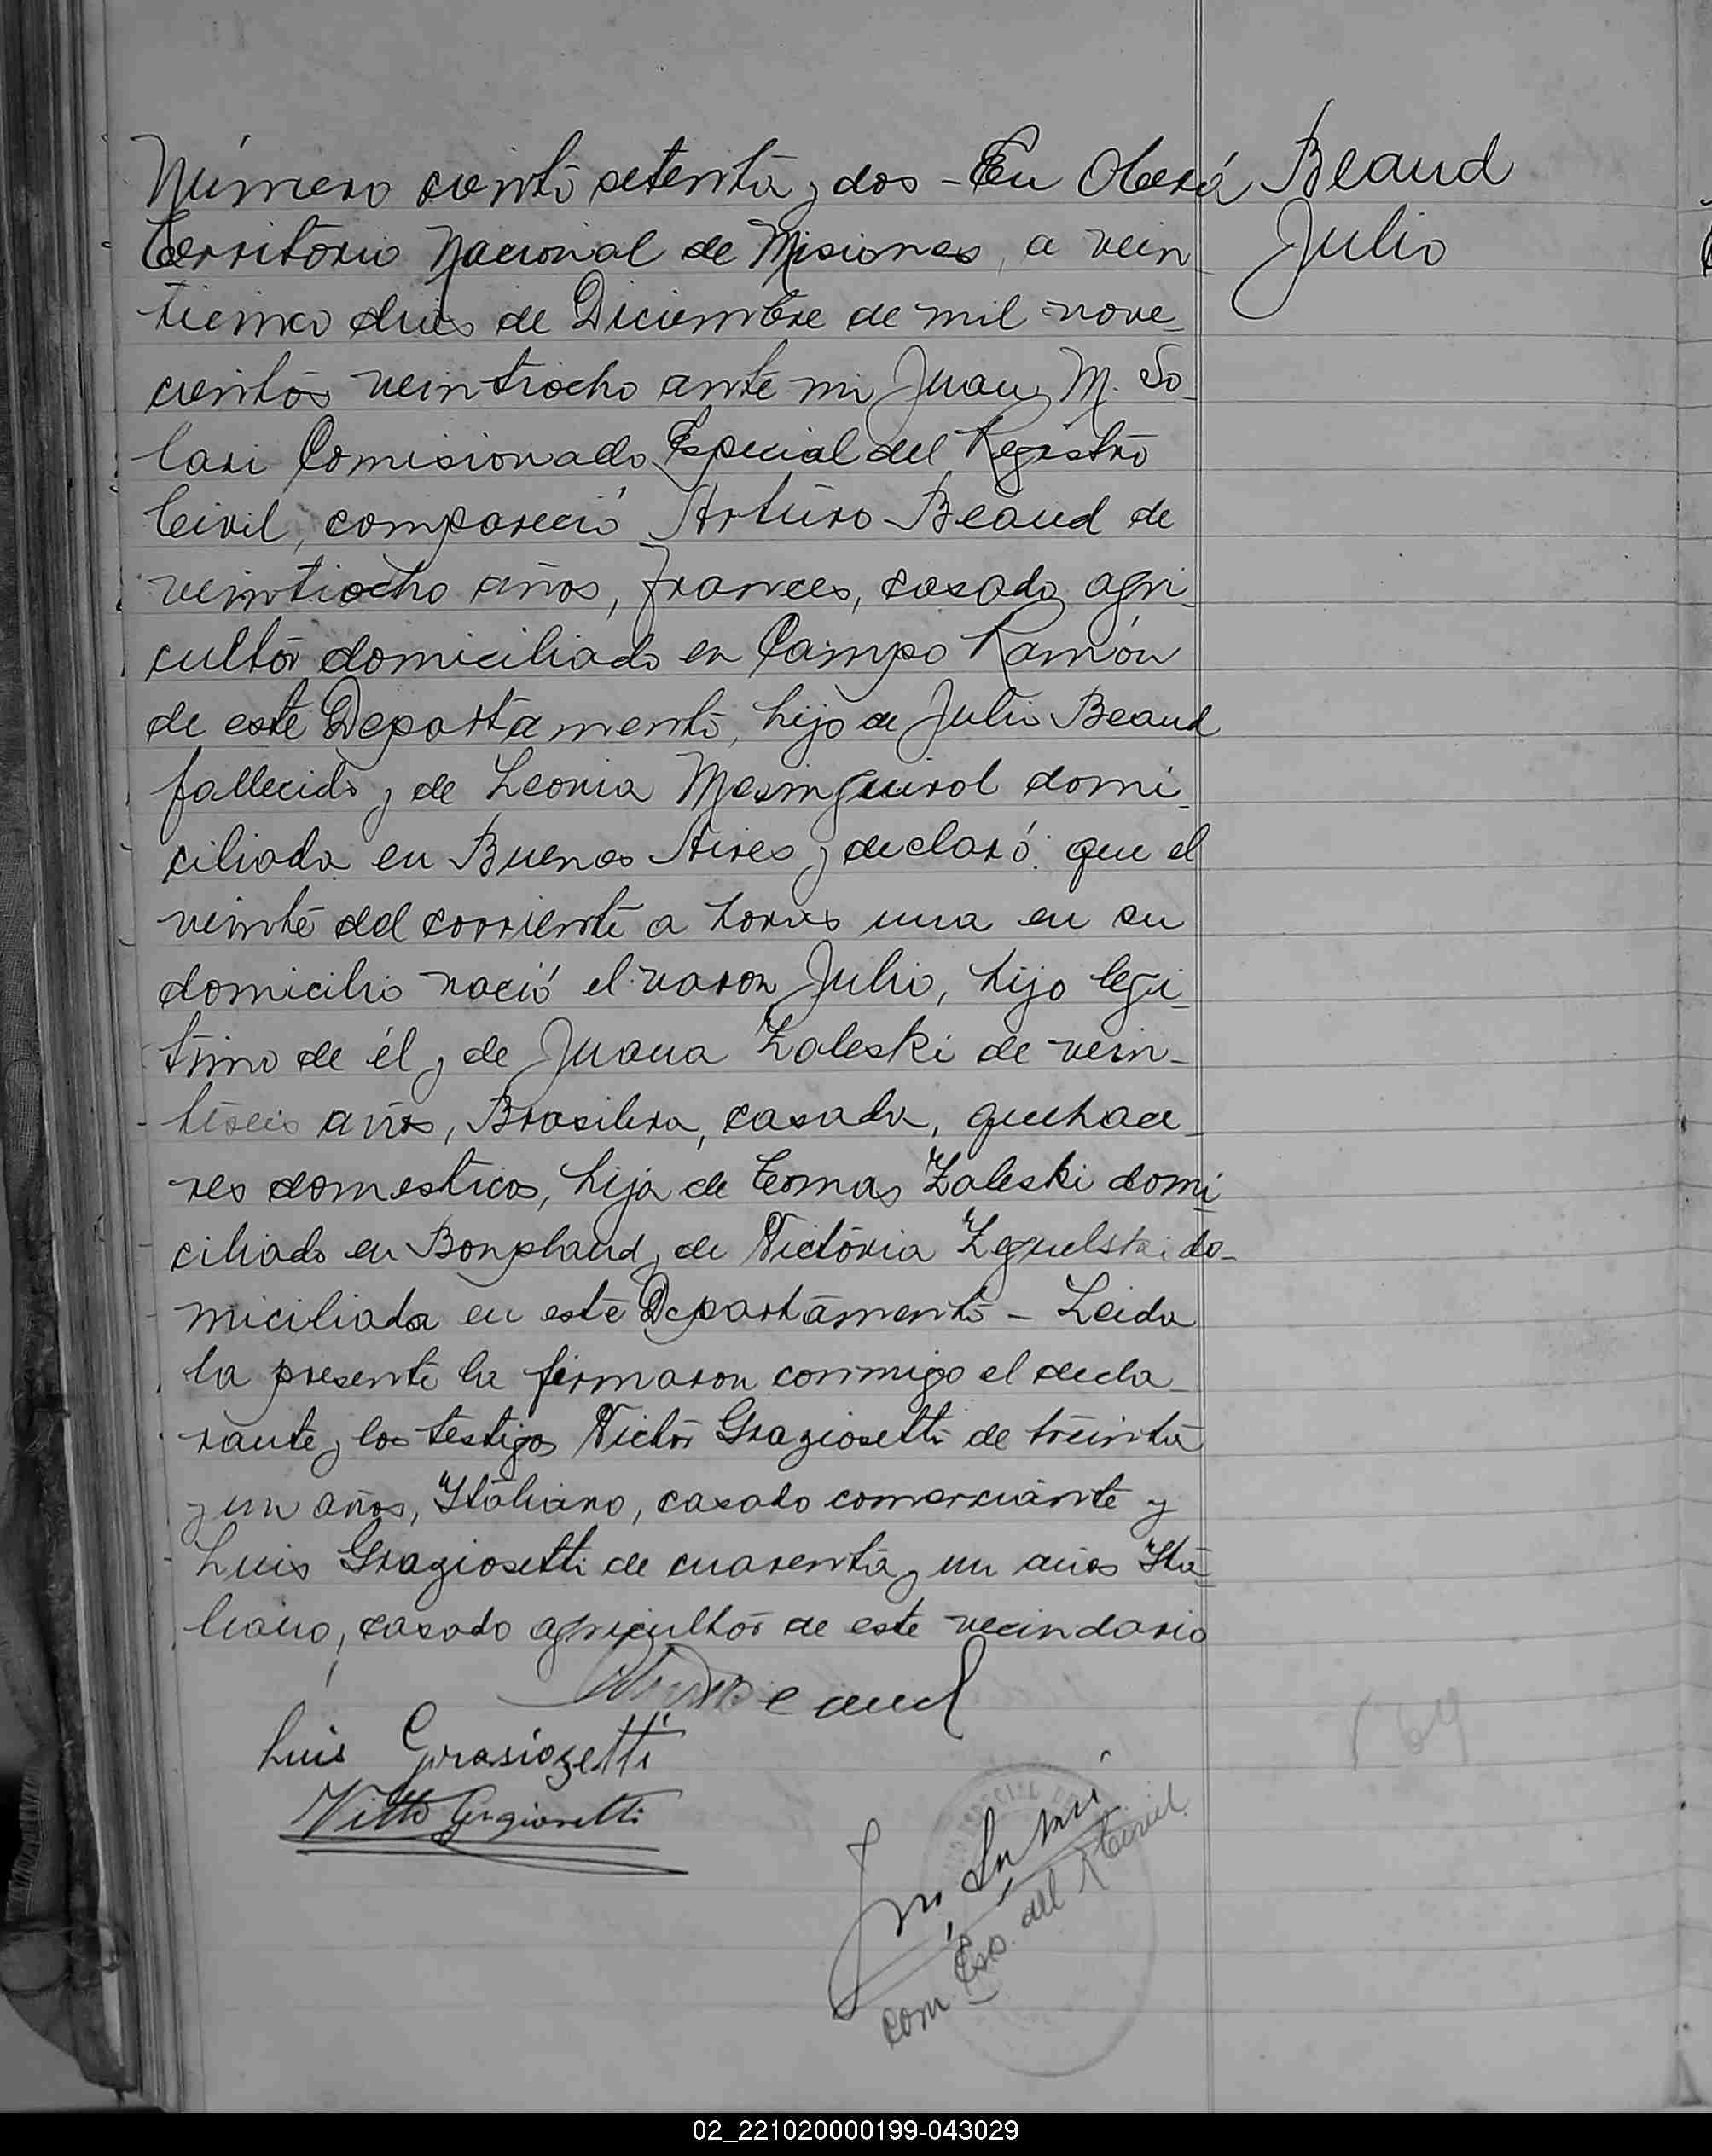 Número ciento setenta y dos - En Oberá
Beaud
Julio
Territorio Nacional de Misiones, a vein
ticinco dias de Diciembre de mil nove-
cientos veintiocho ante mi Juan M. So-
lari Comisionado Especial del Registro
Civil, compareció Arturo Beaud de
veintiocho años, frances, casado, agri-
cultor domiciliado en Campo Ramón
de este Departamento, hijo de Julio Beaud
fallecido y de Leonia domi-
ciliada en Buenos Aires y declaró: que el
veinte del corriente a horas una en su
domicilio nació el varon Julio, hijo legi-
timo de él y de Juana Zaleski de vein-
tiseis años, Brasilera, casada, quehace-
res domesticos, hija de Tomas Zaleski domi-
ciliado en Bonpland y de Victoria do-
miciliada en este Departamento - Leida
la presente la firmaron conmigo el decla-
rante y los testigos Victor Graziosetti de treinta
y un años, Italiano, casado comerciante y
Luis Graziosetti de cuarenta y un años Ita-
liano, casado agricultor de este vecindario
Beaud
Luis Grasiozetti
Com. Esp. del R. Civil.
169
02_221020000199-043029